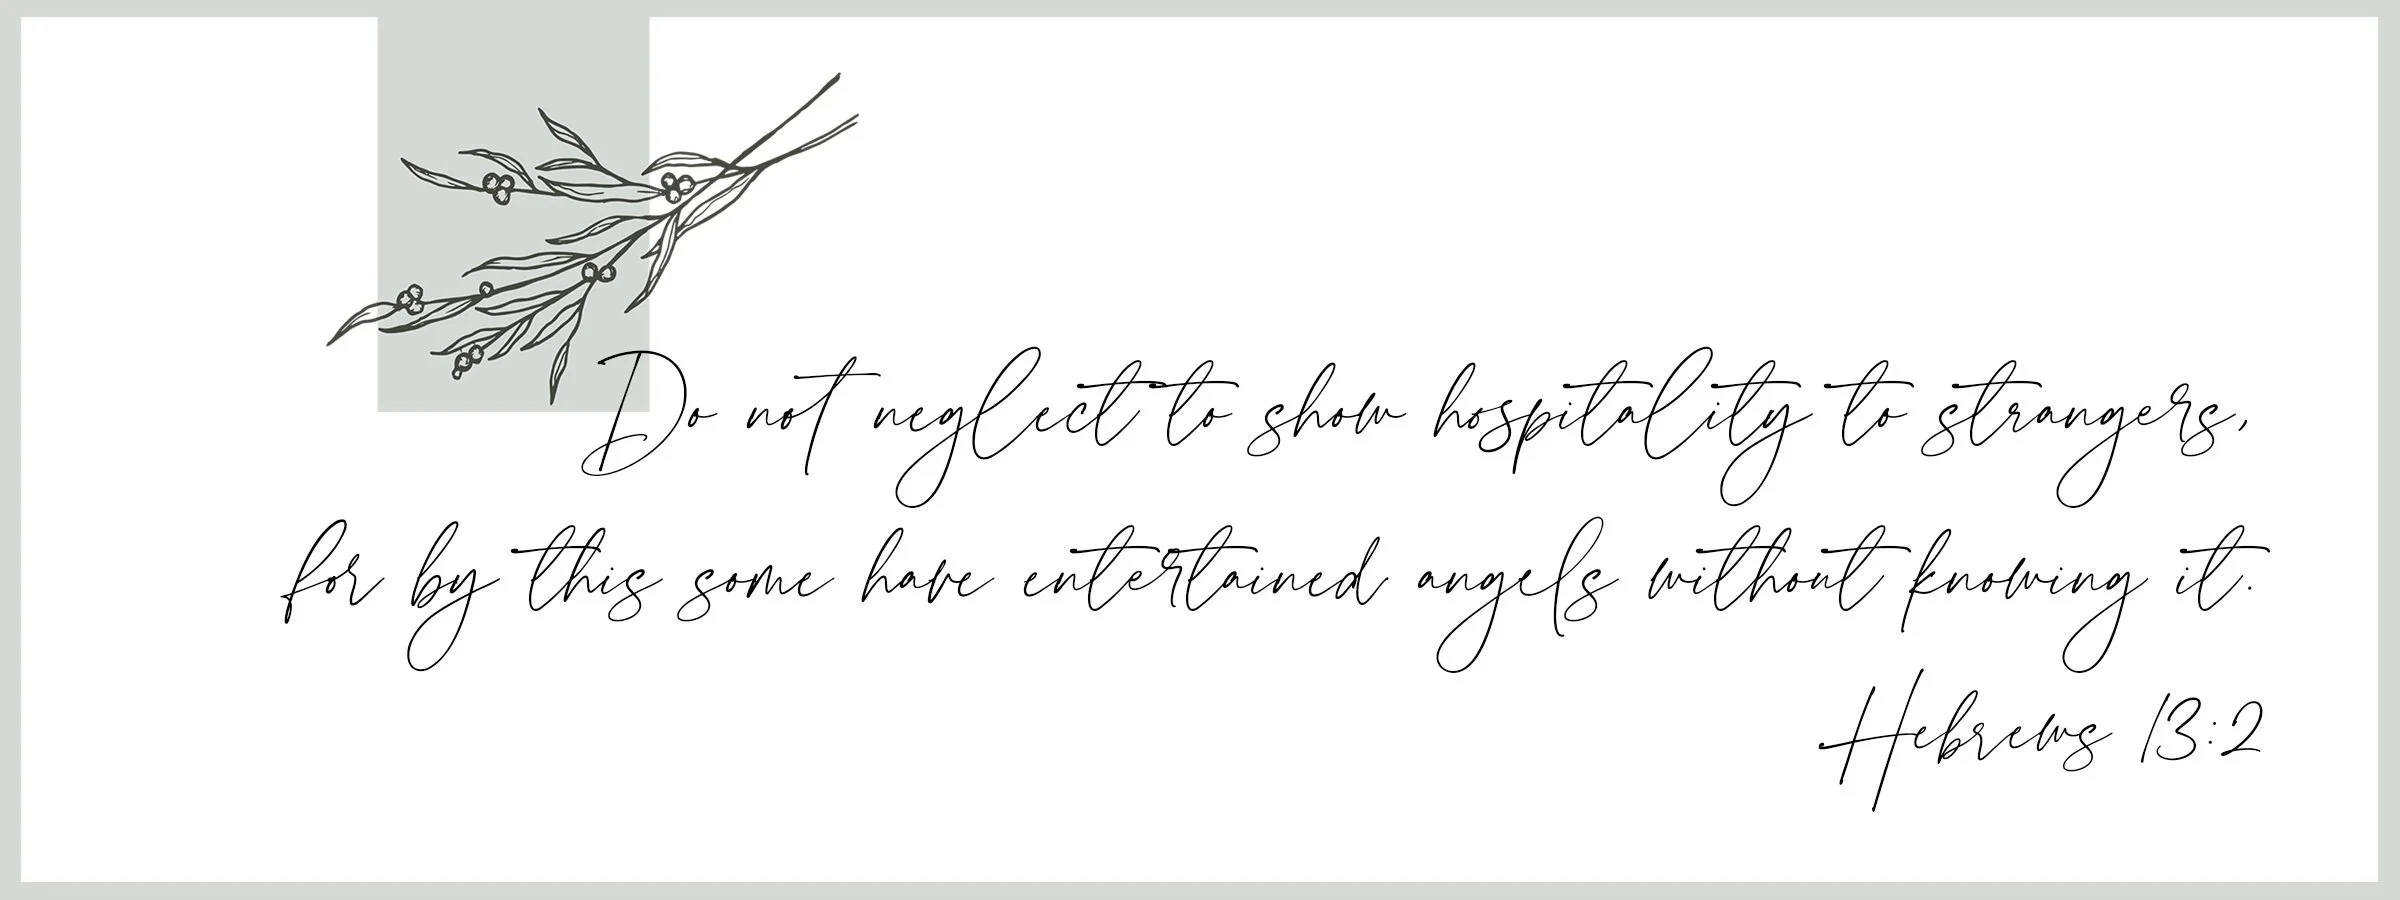 Do not neglect to show hospitality to strangers,
for by this some have entertained angels without knowing it.
Hebrews 13:2